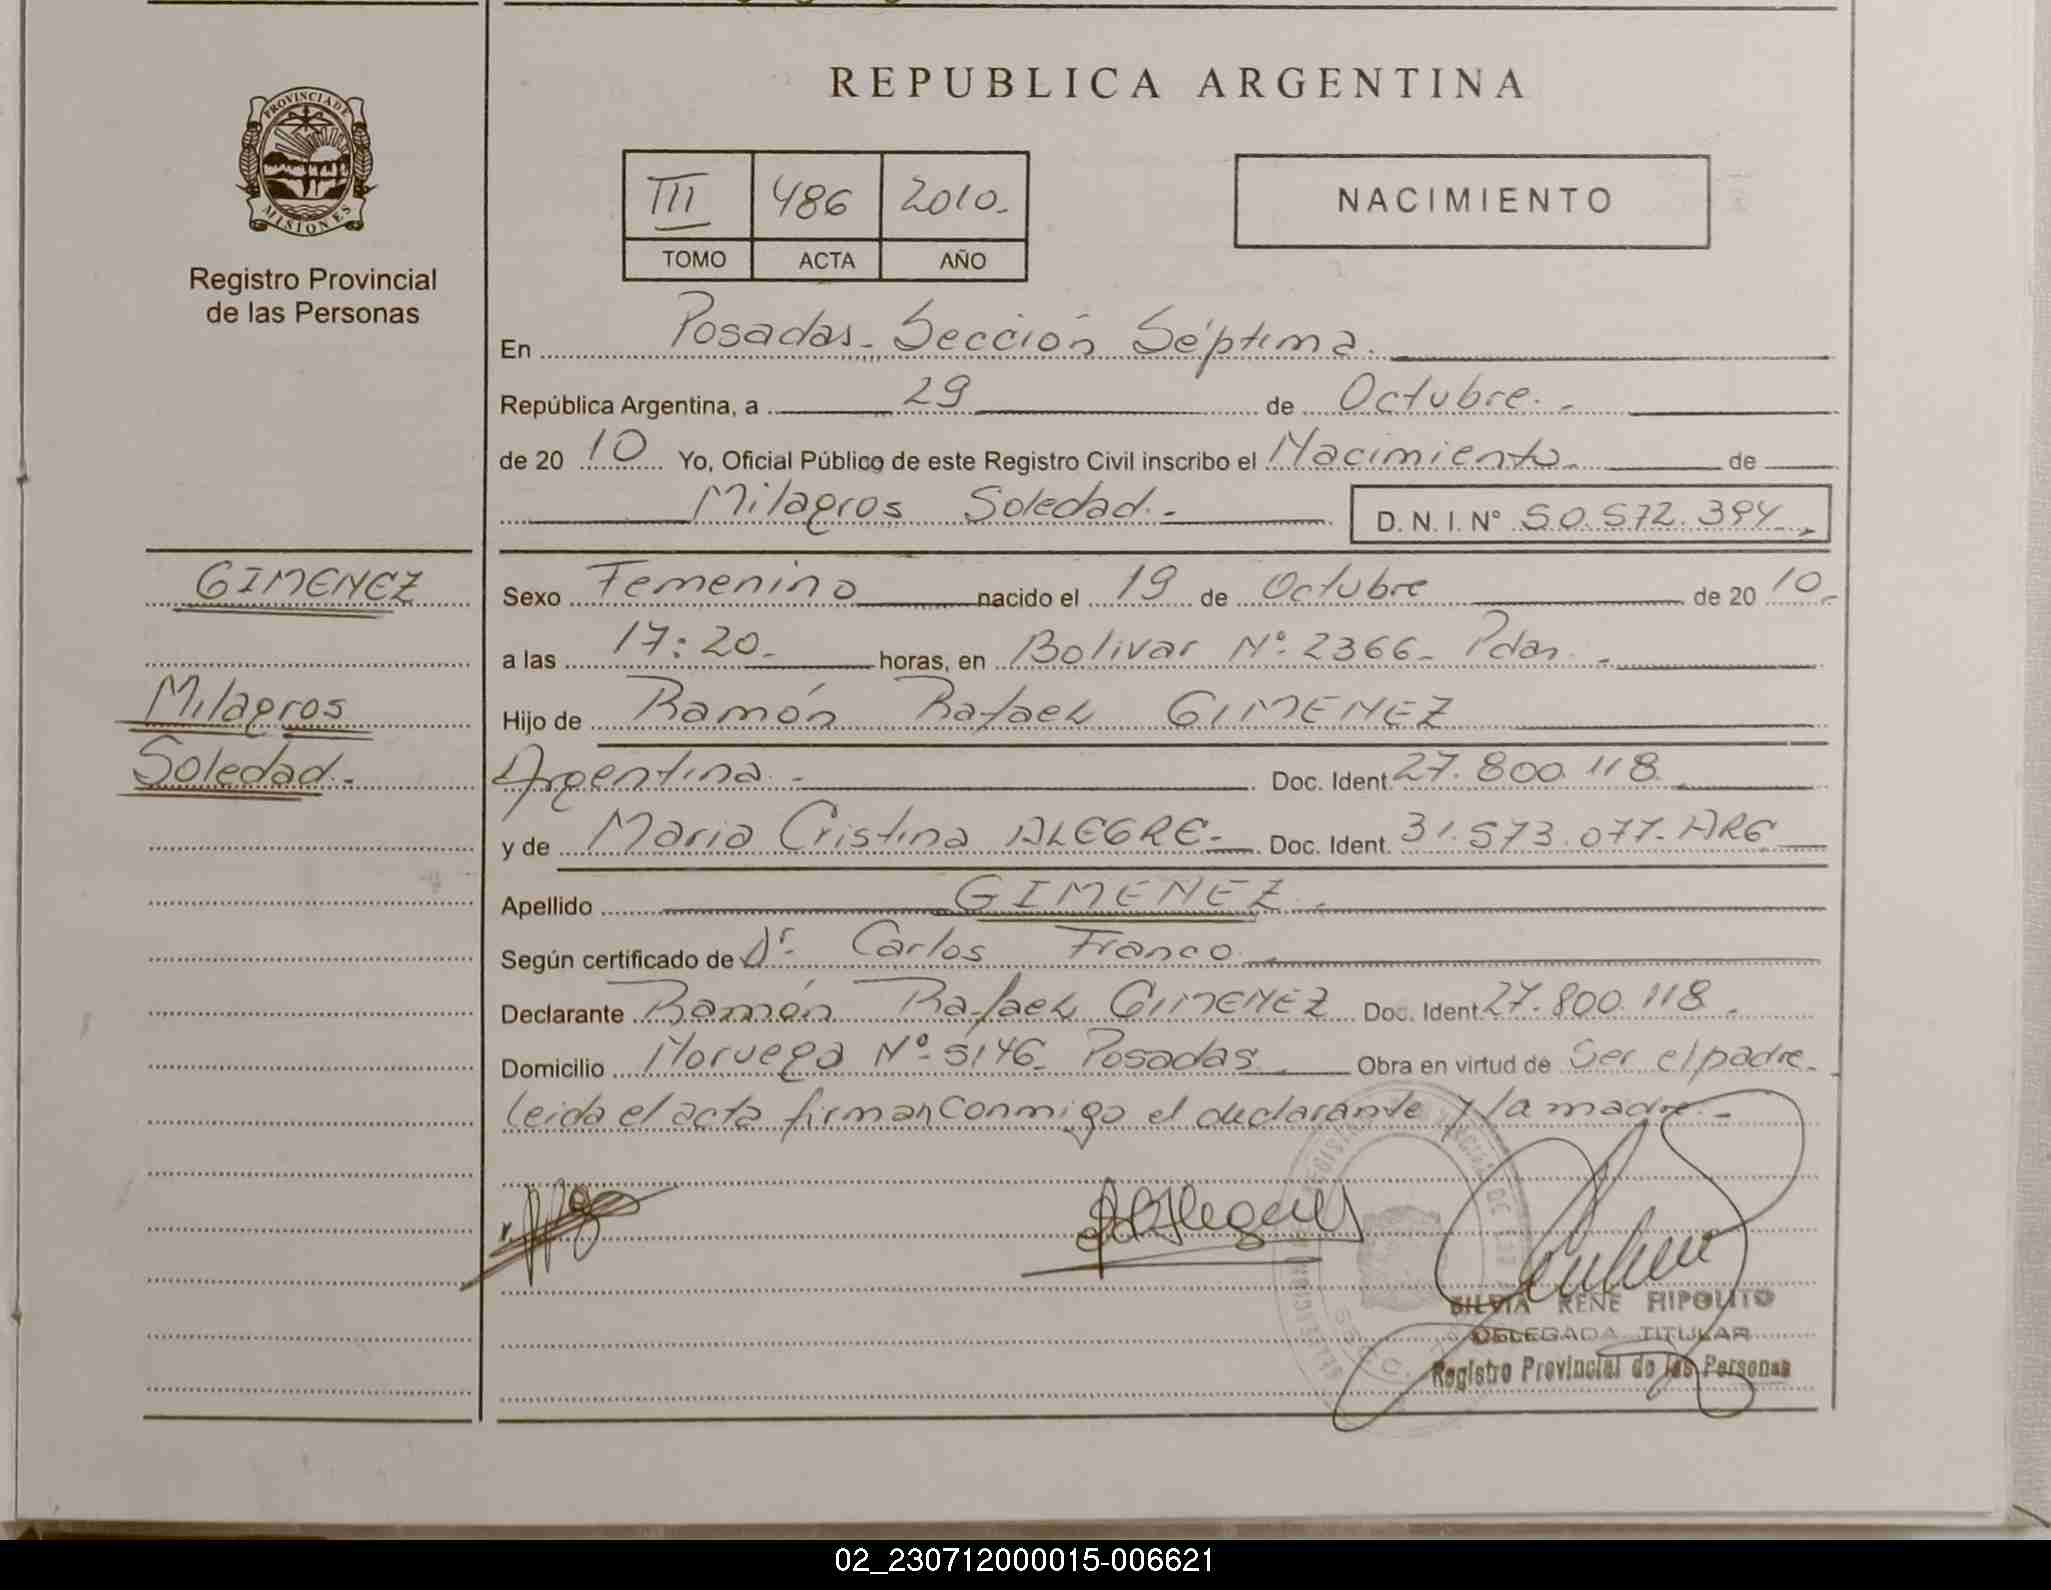 REPUBLICA ARGENTINA
PROVINCIA DE MISIONES
Registro Provincial
de las Personas
III 486 2010.
TOMO ACTA AÑO
NACIMIENTO
En Posadas - Sección Séptima.
República Argentina, a 29 de Octubre.-
de 20 10 Yo, Oficial Público de este Registro Civil inscribo el Nacimiento de
Milagros Soledad.- D. N. I. N° 50.572.394.
GIMENEZ
Milagros
Soledad.-
Sexo Femenino nacido el 19 de Octubre de 20 10.
a las 17:20. horas, en Bolivar N°: 2366. Pdas.
Hijo de Ramón Rafael GIMENEZ
Argentina.- Doc. Ident. 27.800.118
y de Maria Cristina ALEGRE- Doc. Ident. 31.573.077. ARG
Apellido GIMENEZ.-
Según certificado de Dr. Carlos Franco
Declarante Ramón Rafael GIMENEZ Doc. Ident 27.800.118.
Domicilio Noruega N°- 5146. Posadas Obra en virtud de Ser el padre.
leida el acta firman conmigo el declarante y la madre.-
SILVIA RENE HIPOLITO
DELEGADA TITULAR
Registro Provincial de las Personas
02_230712000015-006621